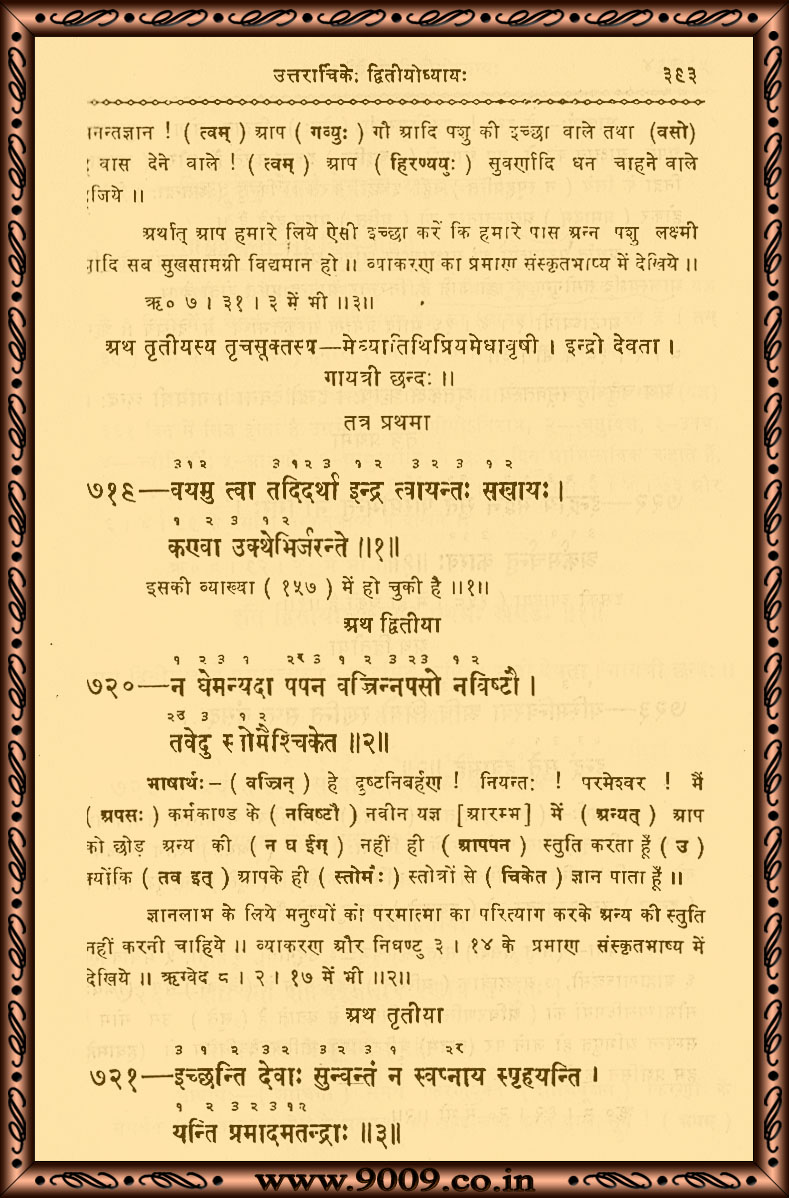 उत्तरार्चिके: द्वितीयोध्यायः ३९३
( त्वम् ) आप ( गव्युः ) गौ आदि पशु की इच्छा वाले तथा (वसो)
वास देने वाले ! ( त्वम् ) आप ( हिरण्ययुः ) सुवर्णादि धन चाहने वाले
अर्थात् आप हमारे लिये ऐसी इच्छा करें कि हमारे पास अन्न पशु लक्ष्मी
सब सुखसामग्री विद्यमान हो ॥ व्याकरण का प्रमाण संस्कृतभाष्य में देखिये ॥
ऋ० ७ । ३१ । ३ में भी ॥३॥
अथ तृतीयस्य तृचसूक्तस्य—मेध्यातिथिप्रियमेधावृषी । इन्द्रो देवता ।
गायत्री छन्दः ॥
तत्र प्रथमा
३ १ २ ३ १ २ ३ १ २ ३ २ ३ १ २
७१९—वयमु त्वा तदिदर्था इन्द्र त्वायन्तः सखायः ।
१ २ ३ १ २
कण्वा उक्थेभिर्जरन्ते ॥१॥
इसकी व्याख्या ( १५७ ) में हो चुकी है ॥१॥
अथ द्वितीया
१ २ ३ १ २र ३ १ २ ३ २३ १ २
७२०—न घेमन्यदा पपन वज्रिन्नपसो नविष्टौ ।
२उ ३ १ २
तवेदु स्तोमैश्चिकेत ॥२॥
भाषार्थः– ( वज्रिन् ) हे दुष्टनिबर्हण ! नियन्तः ! परमेश्वर ! मैं
( अपसः ) कर्मकाण्ड के ( नविष्टौ ) नवीन यज्ञ [आरम्भ] में ( अन्यत् ) आप
को छोड़ अन्य की ( न घ ईम् ) नहीं ही ( आपपन ) स्तुति करता हूँ ( उ )
क्योंकि ( तव इत् ) आपके ही ( स्तोमैः ) स्तोत्रों से ( चिकेत ) ज्ञान पाता हूँ ॥
ज्ञानलाभ के लिये मनुष्यों को परमात्मा का परित्याग करके अन्य की स्तुति
नहीं करनी चाहिये ॥ व्याकरण और निघण्टु ३ । १४ के प्रमाण संस्कृतभाष्य में
देखिये ॥ ऋग्वेद ८ । २ । १७ में भी ॥२॥
अथ तृतीया
३ १ २ ३ २ ३ २ ३ १ २र
७२१—इच्छन्ति देवाः सुन्वन्तं न स्वप्नाय स्पृहयन्ति ।
१ २ ३ २ ३ १२
यन्ति प्रमादमतन्द्राः ॥३॥
www.9009.co.in